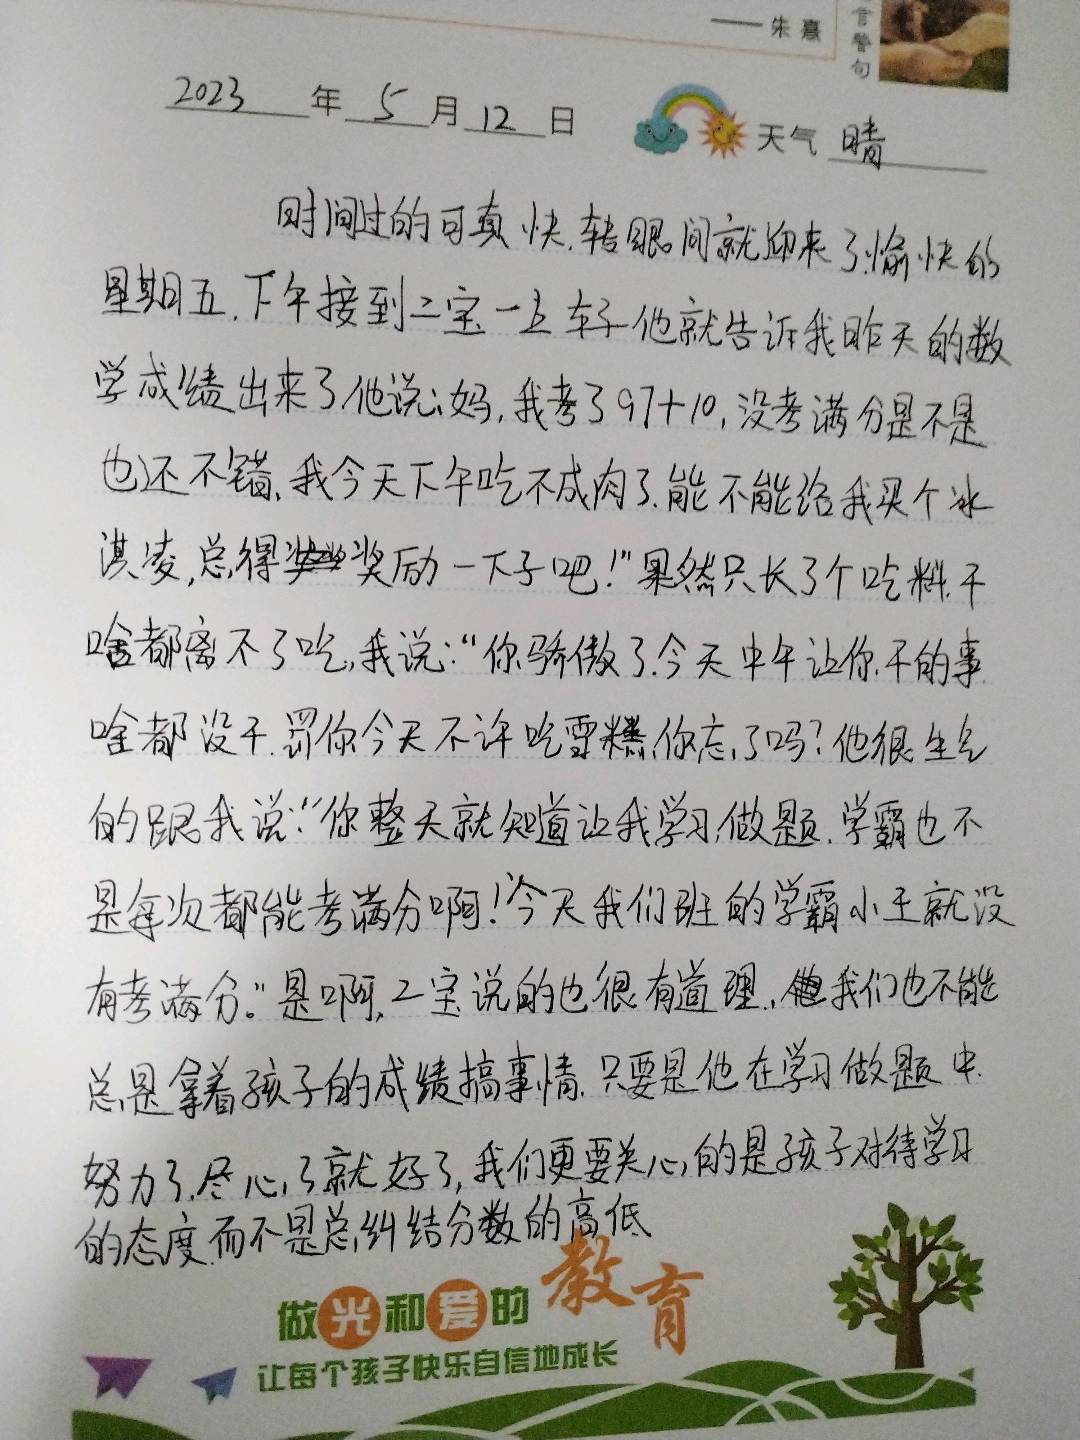 ——朱熹
言警句
2023年5月12日
天气 晴
时间过的可真快.转眼间就迎来了愉快的
星期五.下午接到二宝一上车子他就告诉我昨天的数
学成绩出来了.他说:妈,我考了97+10,没考满分是不是
也还不错,我今天下午吃不成肉了.能不能给我买个冰
淇凌,总得奖励一下子吧!”果然只长了个吃料.干
啥都离不了吃,我说:“你骄傲了.今天中午让你干的事
啥都没干.罚你今天不许吃雪糕.你忘了吗?他很生气
的跟我说:“你整天就知道让我学习,做题.学霸也不
是每次都能考满分啊!今天我们班的学霸小王就没
有考满分。”是啊,二宝说的也很有道理.我们也不能
总是拿着孩子的成绩搞事情.只要是他在学习做题中.
努力了.尽心了就好了,我们更要关心的是孩子对待学习
的态度.而不是总纠结分数的高低
做光和爱的教育
让每个孩子快乐自信地成长